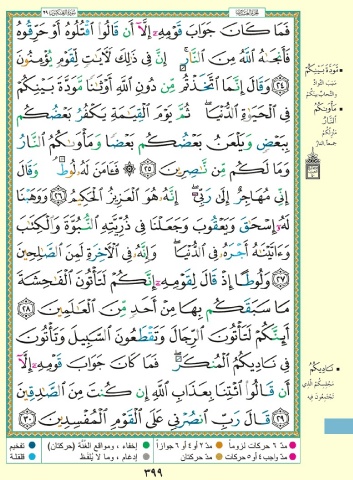 سُورَةُ العَنكَبُوتِ ٢٩
فَمَا كَانَ جَوَابَ قَوْمِهِۦٓ إِلَّآ أَن قَالُوا۟ ٱقْتُلُوهُ أَوْ حَرِّقُوهُ
فَأَنجَىٰهُ ٱللَّهُ مِنَ ٱلنَّارِ ۚ إِنَّ فِى ذَٰلِكَ لَءَايَٰتٍ لِّقَوْمٍ يُؤْمِنُونَ
٢٤ وَقَالَ إِنَّمَا ٱتَّخَذْتُم مِّن دُونِ ٱللَّهِ أَوْثَٰنًا مَّوَدَّةَ بَيْنِكُمْ
فِى ٱلْحَيَوٰةِ ٱلدُّنْيَا ۖ ثُمَّ يَوْمَ ٱلْقِيَٰمَةِ يَكْفُرُ بَعْضُكُم
بِبَعْضٍ وَيَلْعَنُ بَعْضُكُم بَعْضًا وَمَأْوَىٰكُمُ ٱلنَّارُ
وَمَا لَكُم مِّن نَّٰصِرِينَ ٢٥ ۞ فَـَٔامَنَ لَهُۥ لُوطٌ ۘ وَقَالَ
إِنِّى مُهَاجِرٌ إِلَىٰ رَبِّىٓ ۖ إِنَّهُۥ هُوَ ٱلْعَزِيزُ ٱلْحَكِيمُ ٢٦ وَوَهَبْنَا
لَهُۥٓ إِسْحَٰقَ وَيَعْقُوبَ وَجَعَلْنَا فِى ذُرِّيَّتِهِ ٱلنُّبُوَّةَ وَٱلْكِتَٰبَ
وَءَاتَيْنَٰهُ أَجْرَهُۥ فِى ٱلدُّنْيَا ۖ وَإِنَّهُۥ فِى ٱلْءَاخِرَةِ لَمِنَ ٱلصَّٰلِحِينَ
٢٧ وَلُوطًا إِذْ قَالَ لِقَوْمِهِۦٓ إِنَّكُمْ لَتَأْتُونَ ٱلْفَٰحِشَةَ
مَا سَبَقَكُم بِهَا مِنْ أَحَدٍ مِّنَ ٱلْعَٰلَمِينَ ٢٨
أَئِنَّكُمْ لَتَأْتُونَ ٱلرِّجَالَ وَتَقْطَعُونَ ٱلسَّبِيلَ وَتَأْتُونَ
فِى نَادِيكُمُ ٱلْمُنكَرَ ۖ فَمَا كَانَ جَوَابَ قَوْمِهِۦٓ إِلَّآ
أَن قَالُوا۟ ٱئْتِنَا بِعَذَابِ ٱللَّهِ إِن كُنتَ مِنَ ٱلصَّٰدِقِينَ
٢٩ قَالَ رَبِّ ٱنصُرْنِى عَلَى ٱلْقَوْمِ ٱلْمُفْسِدِينَ ٣٠
مَوَدَّةَ بَيْنِكُمْ
مَأْوَىٰكُمُ
ٱلنَّارُ
نَادِيكُمُ
مد ٦ حركات لزوماً مد ٢ أو ٤ أو ٦ جوازاً إخفاء، ومواقع الغنّة (حركتان) تفخيم
مد واجب ٤ أو ٥ حركات مد حركتان إدغام، وما لا يُلفظ قلقلة
٣٩٩